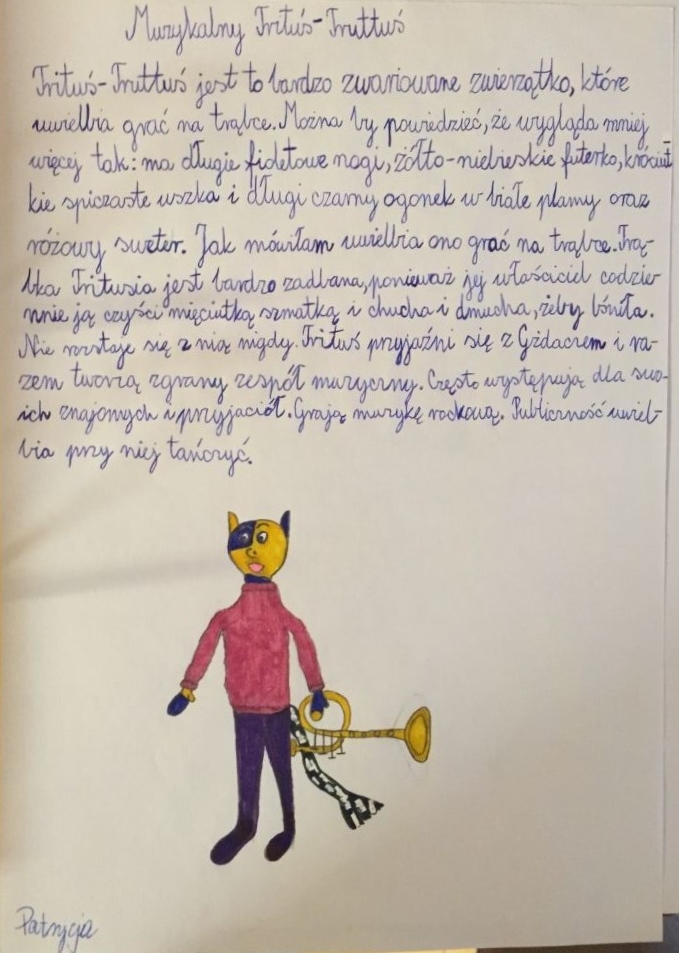 Muzykalny Trituś-Truttuś
Trituś-Truttuś jest to bardzo zwariowane zwierzątko, które
uwielbia grać na trąbce. Można by powiedzieć, że wygląda mniej
więcej tak: ma długie fioletowe nogi, żółto-niebieskie futerko, króciut-
kie spiczaste uszka i długi czarny ogonek w białe plamy oraz
różowy sweter. Jak mówiłam uwielbia ono grać na trąbce. Trą-
bka Tritusia jest bardzo zadbana, ponieważ jej właściciel codzie-
nnie ją czyści mięciutką szmatką i chucha i dmucha, żeby lśniła.
Nie rozstaje się z nią nigdy. Trituś przyjaźni się z Gżdaczem i ra-
zem tworzą zgrany zespół muzyczny. Często występują dla swo-
ich znajomych i przyjaciół. Grają muzykę rockową. Publiczność uwiel-
bia przy niej tańczyć.
Patrycja